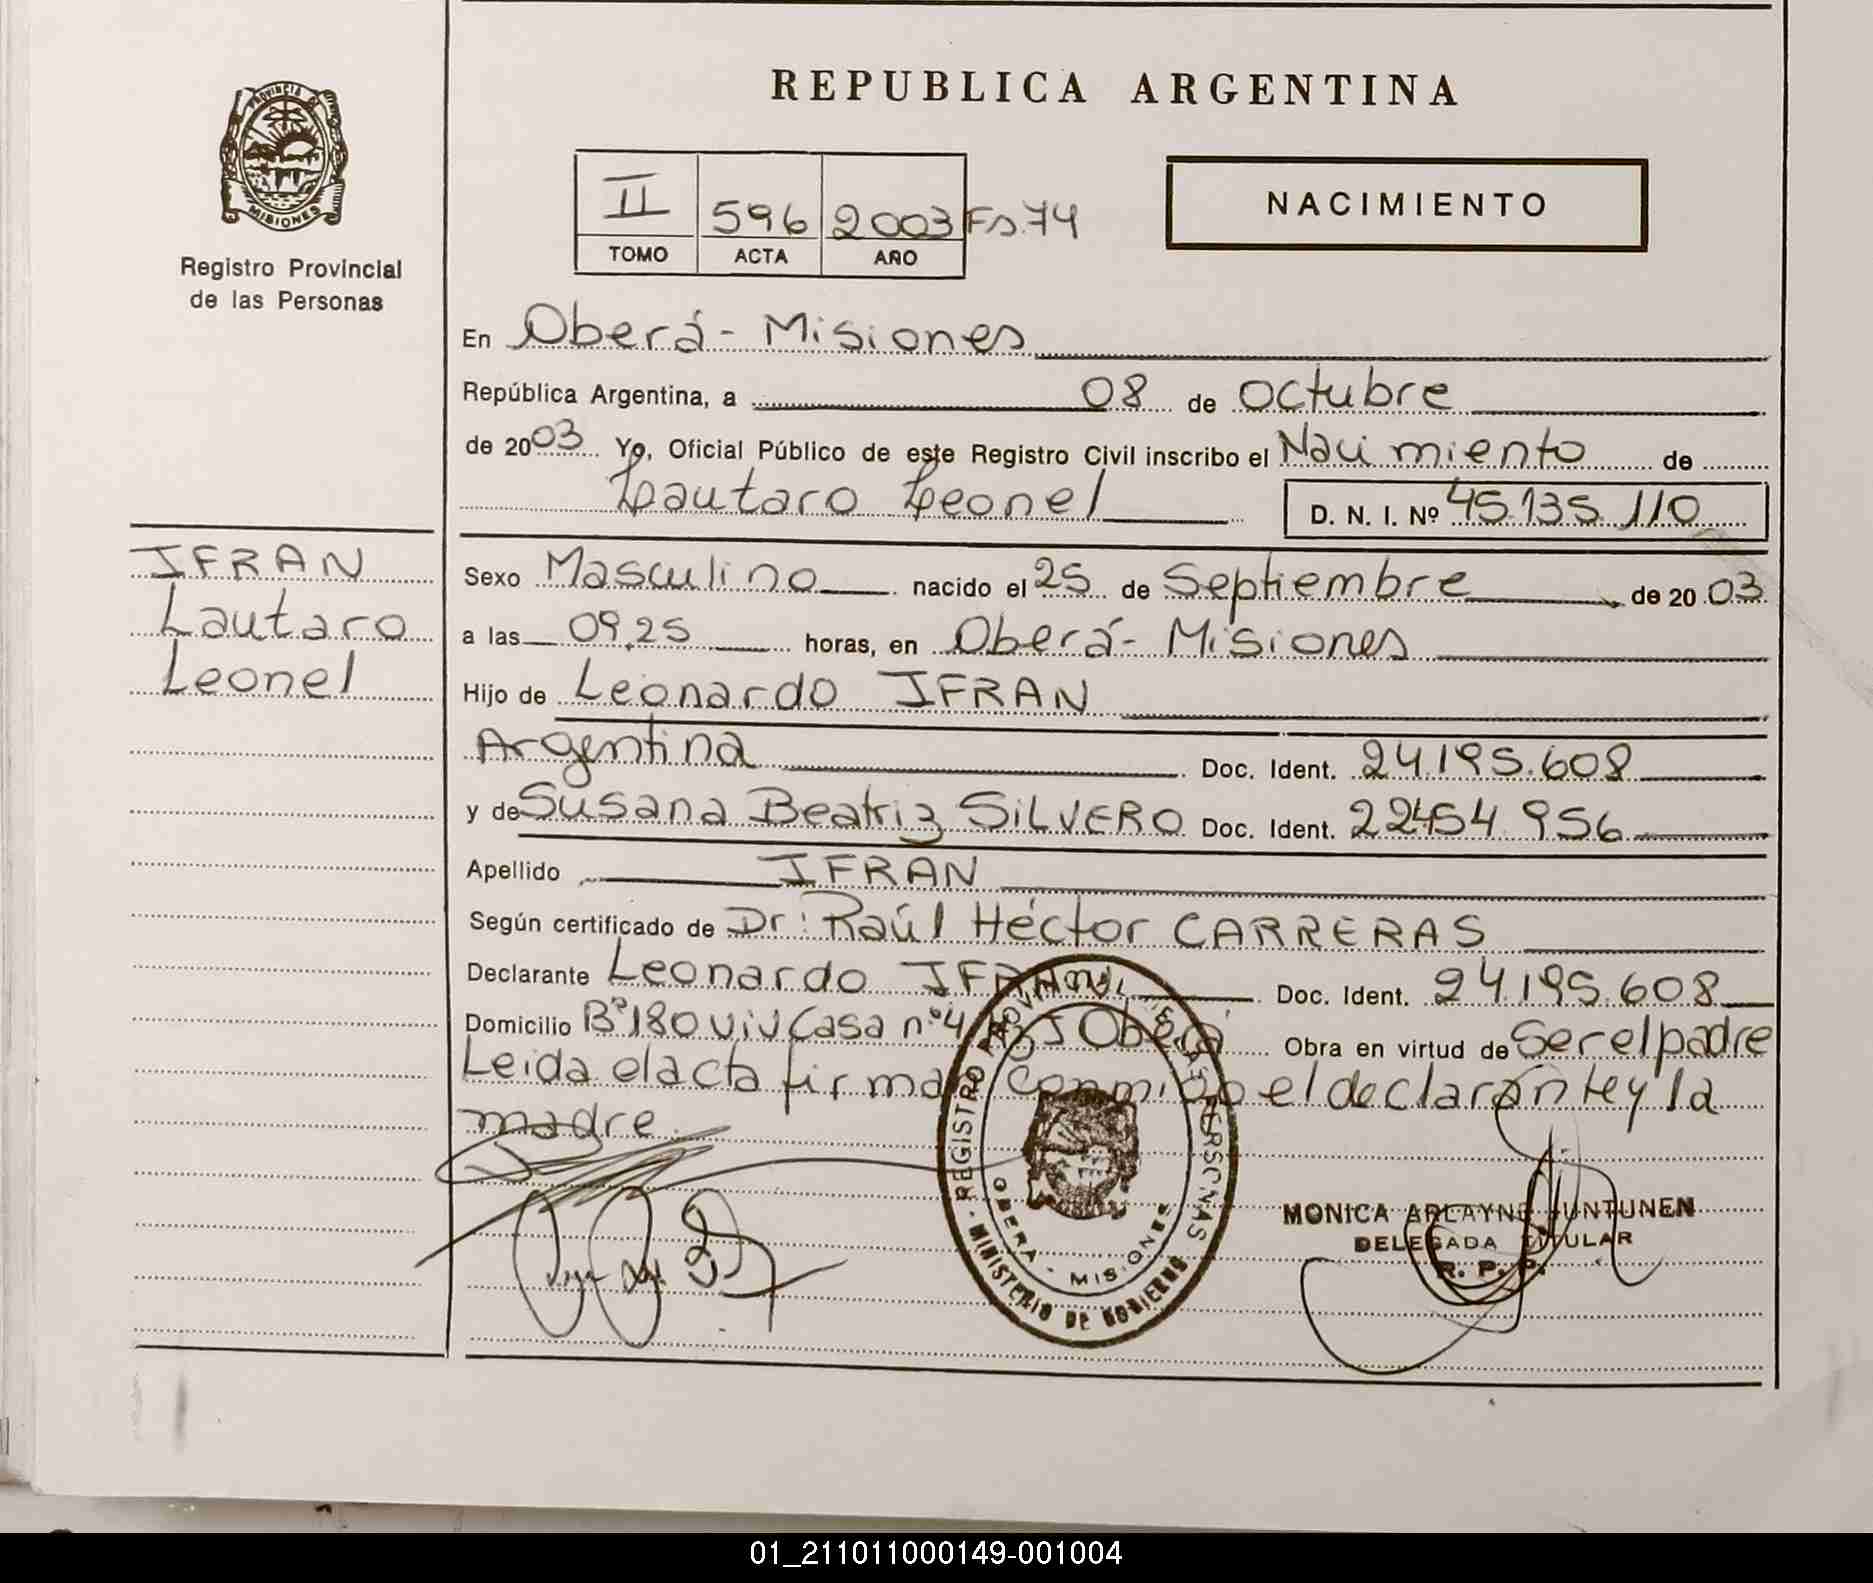 REPUBLICA ARGENTINA
PROVINCIA DE
MISIONES
Registro Provincial
de las Personas
II 596 2003 Fs. 74
TOMO ACTA AÑO
NACIMIENTO
En Oberá - Misiones
República Argentina, a 08 de Octubre
de 2003 Yo, Oficial Público de este Registro Civil inscribo el Nacimiento de
Lautaro Leonel D. N. I. Nº 45.135.110
IFRAN
Lautaro
Leonel
Sexo Masculino nacido el 25 de Septiembre de 2003
a las 09,25 horas, en Oberá - Misiones
Hijo de Leonardo IFRAN
Argentina Doc. Ident. 24.195.608
y de Susana Beatriz SILVERO Doc. Ident. 22454.956
Apellido IFRAN
Según certificado de Dr: Raúl Héctor CARRERAS
Declarante Leonardo IFRAN Doc. Ident. 24.195.608
Domicilio Bº180 viv Casa nº4 Oberá Obra en virtud de Ser el padre
Leida el acta firman conmigo el declarante y la
madre.
REGISTRO PROVINCIAL DE LAS PERSONAS
OBERA - MISIONES
- MINISTERIO DE GOBIERNO -
MONICA ARLAYNE JUNTUNEN
DELEGADA TITULAR
R. P. P.
01_211011000149-001004